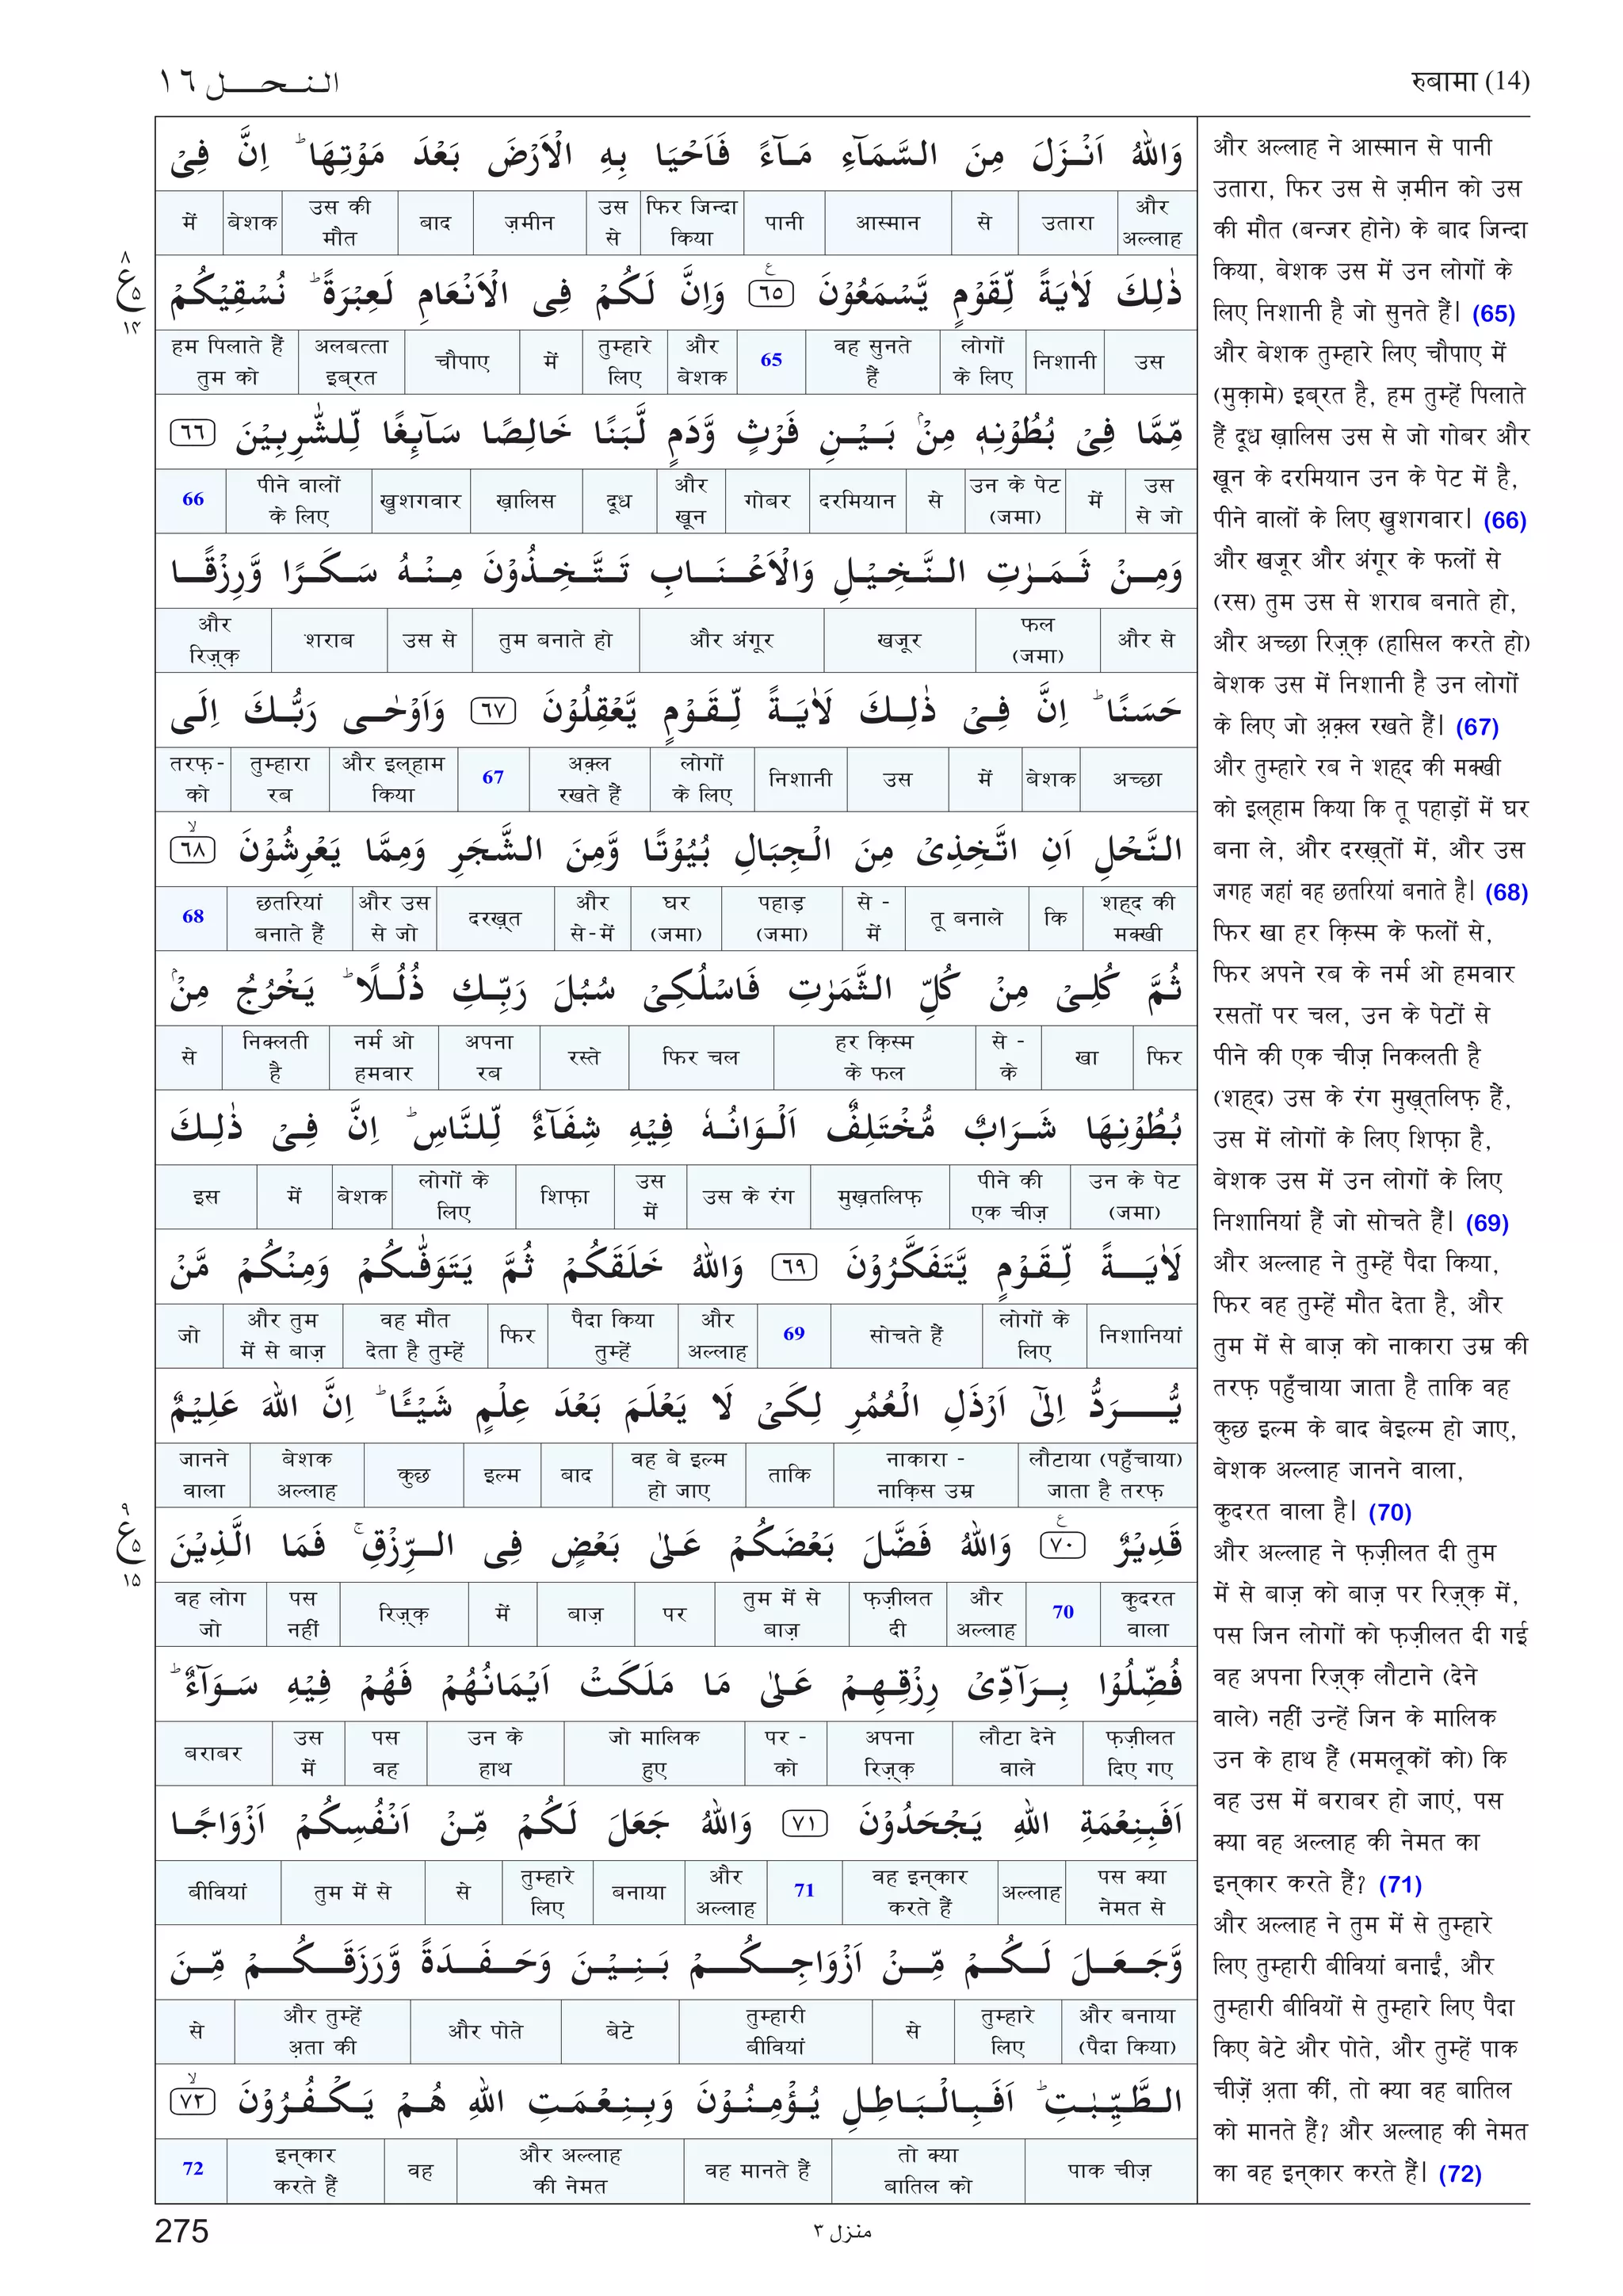 النحل ١٦
रुबामा (14)
وَاللّٰهُ اَنْزَلَ مِنَ السَّمَآءِ مَآءً فَاَحْيَا بِهِ الْاَرْضَ بَعْدَ مَوْتِهَا ؕ اِنَّ فِىْ
और अल्लाह उतारा से आस्मान पानी फिर जिन्दा किया उस से ज़मीन बाद उस की मौत बेशक में
ذٰلِكَ لَاٰيَةً لِّقَوْمٍ يَّسْمَعُوْنَ ٦٥ وَاِنَّ لَكُمْ فِى الْاَنْعَامِ لَعِبْرَةً ؕ نُسْقِيْكُمْ
उस निशानी लोगों के लिए वह सुनते हैं 65 और बेशक तुम्हारे लिए में चौपाए अलबत्ता इब्रत हम पिलाते हैं तुम को
مِّمَّا فِىْ بُطُوْنِهٖ مِنْۢ بَيْنِ فَرْثٍ وَّدَمٍ لَّبَنًا خَالِصًا سَآئِغًا لِّلشّٰرِبِيْنَ ٦٦
उस से जो में उन के पेट (जमा) से दरमियान गोबर और ख़ून दूध ख़ालिस ख़ुशगवार पीने वालों के लिए 66
وَمِنْ ثَمَرٰتِ النَّخِيْلِ وَالْاَعْنَابِ تَتَّخِذُوْنَ مِنْهُ سَكَرًا وَّرِزْقًا
और से फल (जमा) खजूर और अंगूर तुम बनाते हो उस से शराब और रिज़्क़
حَسَنًا ؕ اِنَّ فِىْ ذٰلِكَ لَاٰيَةً لِّقَوْمٍ يَّعْقِلُوْنَ ٦٧ وَاَوْحٰى رَبُّكَ اِلَى
अच्छा बेशक में उस निशानी लोगों के लिए अक़्ल रखते हैं 67 और इल्हाम किया तुम्हारा रब तरफ़-को
النَّحْلِ اَنِ اتَّخِذِىْ مِنَ الْجِبَالِ بُيُوْتًا وَّمِنَ الشَّجَرِ وَمِمَّا يَعْرِشُوْنَ ۙ ٦٨
शह्द की मक्खी कि तू बनाले से - में पहाड़ (जमा) घर (जमा) और से-में दरख़्त और उस से जो छतरियां बनाते हैं 68
ثُمَّ كُلِىْ مِنْ كُلِّ الثَّمَرٰتِ فَاسْلُكِىْ سُبُلَ رَبِّكِ ذُلُلًا ؕ يَخْرُجُ مِنْۢ
फिर खा से - के हर क़िस्म के फल फिर चल रस्ते अपना रब नर्म ओ हमवार निकलती है से
بُطُوْنِهَا شَرَابٌ مُّخْتَلِفٌ اَلْوَانُهٗ فِيْهِ شِفَآءٌ لِّلنَّاسِ ؕ اِنَّ فِىْ ذٰلِكَ
उन के पेट (जमा) पीने की एक चीज़ मुख़तलिफ़ उस के रंग उस में शिफ़ा लोगों के लिए बेशक में इस
لَاٰيَةً لِّقَوْمٍ يَّتَفَكَّرُوْنَ ٦٩ وَاللّٰهُ خَلَقَكُمْ ثُمَّ يَتَوَفّٰٮكُمْ وَمِنْكُمْ مَّنْ
निशानियां लोगों के लिए सोचते हैं 69 और अल्लाह पैदा किया तुम्हें फिर वह मौत देता है तुम्हें और तुम में से बाज़ जो
يُّرَدُّ اِلٰٓى اَرْذَلِ الْعُمُرِ لِكَىْ لَا يَعْلَمَ بَعْدَ عِلْمٍ شَيْئًا ؕ اِنَّ اللّٰهَ عَلِيْمٌ
लौटाया (पहुँचाया) जाता है तरफ़ नाकारा - नाक़िस उम्र ताकि वह बे इल्म हो जाए बाद इल्म कुछ बेशक अल्लाह जानने वाला
قَدِيْرٌ ٧٠ وَاللّٰهُ فَضَّلَ بَعْضَكُمْ عَلٰى بَعْضٍ فِى الرِّزْقِ ۚ فَمَا الَّذِيْنَ
कुदरत वाला 70 और अल्लाह फ़ज़ीलत दी तुम में से बाज़ पर बाज़ में रिज़्क़ पस नहीं वह लोग जो
فُضِّلُوْا بِرَآدِّىْ رِزْقِهِمْ عَلٰى مَا مَلَكَتْ اَيْمَانُهُمْ فَهُمْ فِيْهِ سَوَآءٌ ؕ
फ़ज़ीलत दिए गए लौटा देने वाले अपना रिज़्क़ पर - को जो मालिक हुए उन के हाथ पस वह उस में बराबर
اَفَبِنِعْمَةِ اللّٰهِ يَجْحَدُوْنَ ٧١ وَاللّٰهُ جَعَلَ لَكُمْ مِّنْ اَنْفُسِكُمْ اَزْوَاجًا
पस क्या नेमत से अल्लाह वह इन्कार करते हैं 71 और अल्लाह बनाया तुम्हारे लिए से तुम में से बीवियां
وَّجَعَلَ لَكُمْ مِّنْ اَزْوَاجِكُمْ بَنِيْنَ وَحَفَدَةً وَّرَزَقَكُمْ مِّنَ
और बनाया (पैदा किया) तुम्हारे लिए से तुम्हारी बीवियां बेटे और पोते और तुम्हें अ़ता की से
الطَّيِّبٰتِ ؕ اَفَبِالْبَاطِلِ يُؤْمِنُوْنَ وَبِنِعْمَتِ اللّٰهِ هُمْ يَكْفُرُوْنَ ۙ ٧٢
पाक चीज़ तो क्या बातिल को वह मानते हैं और अल्लाह की नेमत वह इन्कार करते हैं 72
और अल्लाह ने आस्मान से पानी
उतारा, फिर उस से ज़मीन को उस
की मौत (बन्जर होने) के बाद जिन्दा
किया, बेशक उस में उन लोगों के
लिए निशानी है जो सुनते हैं। (65)
और बेशक तुम्हारे लिए चौपाए में
(मुक़ामे) इब्रत है, हम तुम्हें पिलाते
हैं दूध ख़ालिस उस से जो गोबर और
ख़ून के दरमियान उन के पेट में है,
पीने वालों के लिए ख़ुशगवार। (66)
और खजूर और अंगूर के फलों से
(रस) तुम उस से शराब बनाते हो,
और अच्छा रिज़्क़ (हासिल करते हो)
बेशक उस में निशानी है उन लोगों
के लिए जो अ़क़्ल रखते हैं। (67)
और तुम्हारे रब ने शह्द की मक्खी
को इल्हाम किया कि तू पहाड़ों में घर
बना ले, और दरख़्तों में, और उस
जगह जहां वह छतरियां बनाते है। (68)
फिर खा हर क़िस्म के फलों से,
फिर अपने रब के नर्म ओ हमवार
रसतों पर चल, उन के पेटों से
पीने की एक चीज़ निकलती है
(शह्द) उस के रंग मुख़्तलिफ़ हैं,
उस में लोगों के लिए शिफ़ा है,
बेशक उस में उन लोगों के लिए
निशानियां हैं जो सोचते हैं। (69)
और अल्लाह ने तुम्हें पैदा किया,
फिर वह तुम्हें मौत देता है, और
तुम में से बाज़ को नाकारा उम्र की
तरफ़ पहुँचाया जाता है ताकि वह
कुछ इल्म के बाद बेइल्म हो जाए,
बेशक अल्लाह जानने वाला,
कुदरत वाला है। (70)
और अल्लाह ने फ़ज़ीलत दी तुम
में से बाज़ को बाज़ पर रिज़्क़ में,
पस जिन लोगों को फ़ज़ीलत दी गई
वह अपना रिज़्क़ लौटाने (देने
वाले) नहीं उन्हें जिन के मालिक
उन के हाथ हैं (ममलूकों को) कि
वह उस में बराबर हो जाएं, पस
क्या वह अल्लाह की नेमत का
इन्कार करते हैं? (71)
और अल्लाह ने तुम में से तुम्हारे
लिए तुम्हारी बीवियां बनाईं, और
तुम्हारी बीवियों से तुम्हारे लिए पैदा
किए बेटे और पोते, और तुम्हें पाक
चीज़ें अ़ता कीं, तो क्या वह बातिल
को मानते हैं? और अल्लाह की नेमत
का वह इन्कार करते हैं। (72)
٨
ع
٥
١٤
٩
ع
٥
١٥
275
منزل ٣